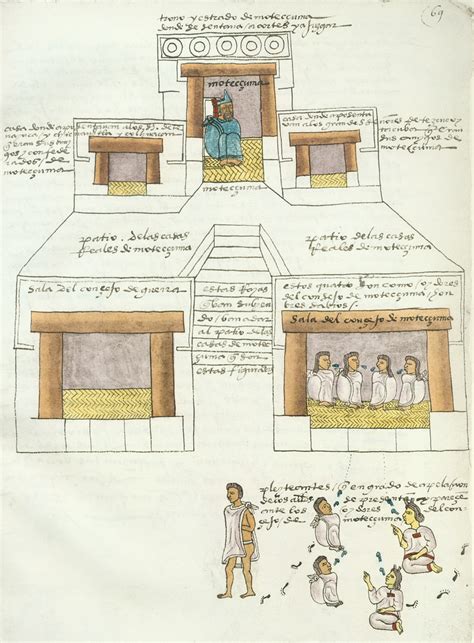 69
trono y estrado de motecçuma
donde se sentava a cortes y a juzgar
motecçuma
casa donde aposentavan a los s.es de te
nayuca / y chicnauhtla y culhuacan
q̃ eran sus ami
gos y confede
rados / de
motecçuma
casa donde aposenta
van a los grandes
señores de tezcuco y
tlacuba q̃ eran
sus amigos de
motecçuma
motecçuma
patio de las casas
Reales de motecçuma
patio de las casas
Reales de motecçuma
sala del consejo de guerra
estas rayas
van subien
do / van a dar
al patio de las
casas de motec
çuma q̃ son
estas figuradas
estos quatro son como / oydores
del consejo de motecçuma / hon
bres sabios /
sala del consejo de motecçuma
pleyteantes / q̃ en grado de apelasion
de presentan y pareçe
ante los oydores del con
sejo / de motecçuma